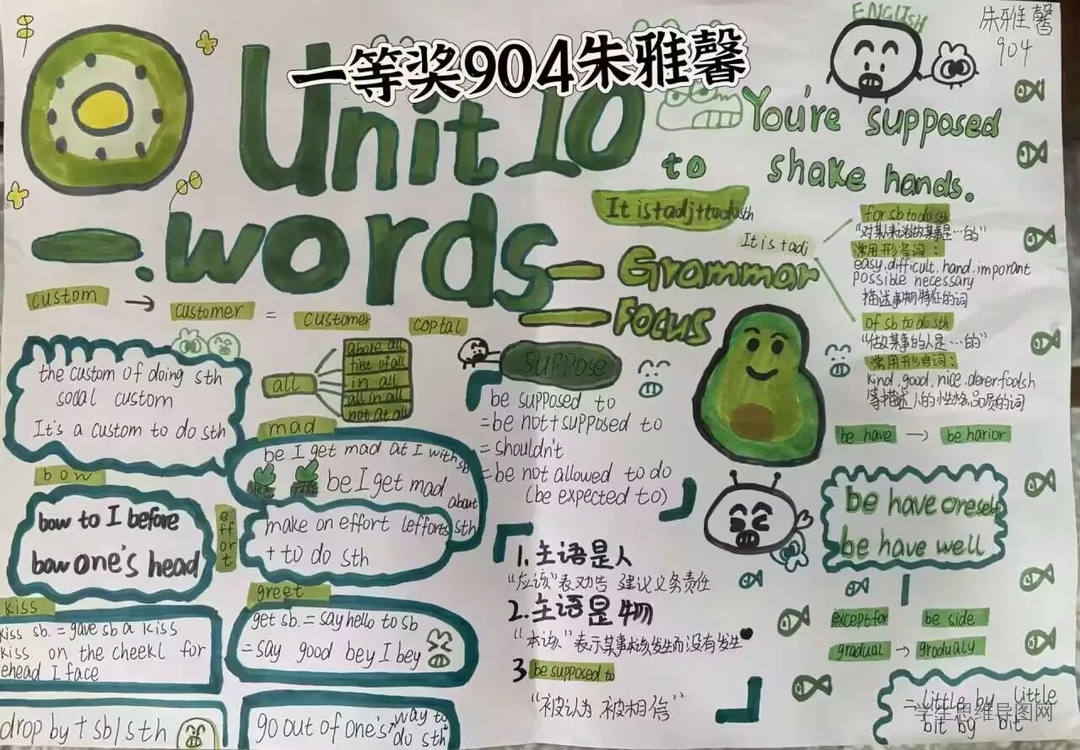 ENGLISH
朱雅馨
904
一等奖904朱雅馨
Unit 10
You're supposed
to shake hands.
words
It is+adj+to do sth
Grammar
Focus
It is + adj
for sb to do sth
"对某人来说做某事是…的"
常用形容词:
easy.difficult.hand.imporant
possible necessary
描述事物特征的词
of sb to do sth
"做某事的人是…的"
常用形容词:
kind.good.nice.
等描述人的性格品质的词
custom → customer = customer coptal
the custom of doing sth
social custom
It's a custom to do sth
all
above all
first of all
in all
all in all
not at all
mad
be I get mad at I with sb
be I get mad
about
sth
bow
bow to I before
bow one's head
effort
make an effort I efforts
+ to do sth
kiss
kiss sb. = gave sb a kiss
kiss on the cheekl for
ehead I face
greet
get sb. = say hello to sb
= say good bey I bey
drop by + sb/sth
go out of one's way to
do sth
suppose
be supposed to
= be not+supposed to
= shouldn't
= be not allowed to do
(be expected to)
1. 主语是人
"应该"表劝告 建议义务责任
2. 主语是物
"本该"表示某事本该发生而没有发生
3 be supposed to
"被认为 被相信"
be have → be harior
be have oneself
be have well
except for
be side
gradual → gradualy
= little by little
bit by bit
学生思维导图网